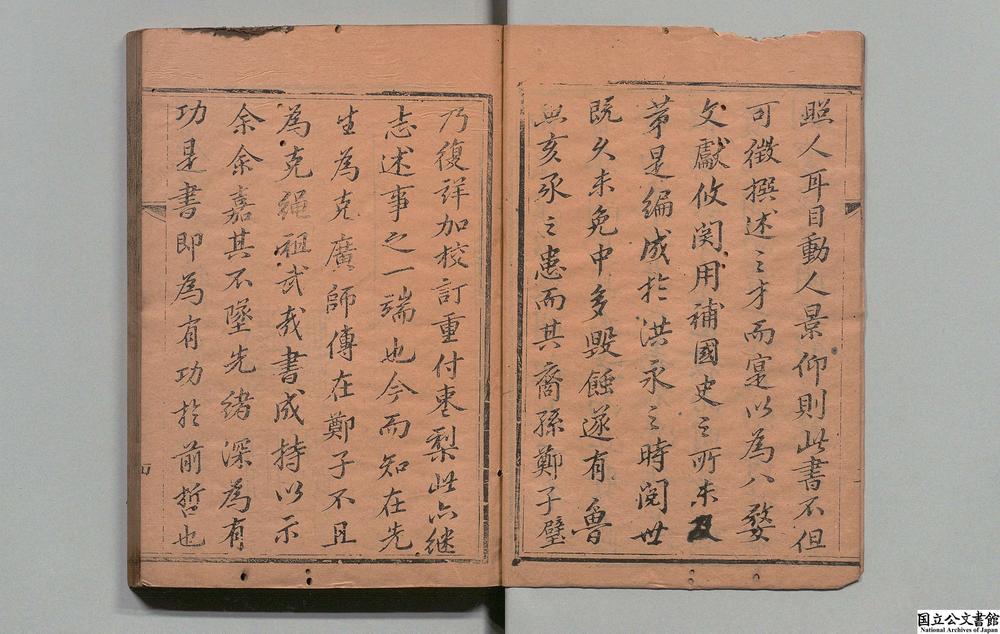 照人耳目動人景仰則此書不但
可徴撰述之才而寔以為八婺
文獻攸関用補國史之所未及
茅是編成於洪永之時閱世
既久未免中多毀蝕遂有魯
無亥豕之患而其裔孫鄭子璧
乃復詳加校訂重付枣梨此亦継
志述事之一端也今而知在先
生為克廣師傳在鄭子不且
為克繩祖武哉書成持以示
余余嘉其不墜先緒深為有
功是書即為有功於前哲也
国立公文書館
National Archives of Japan